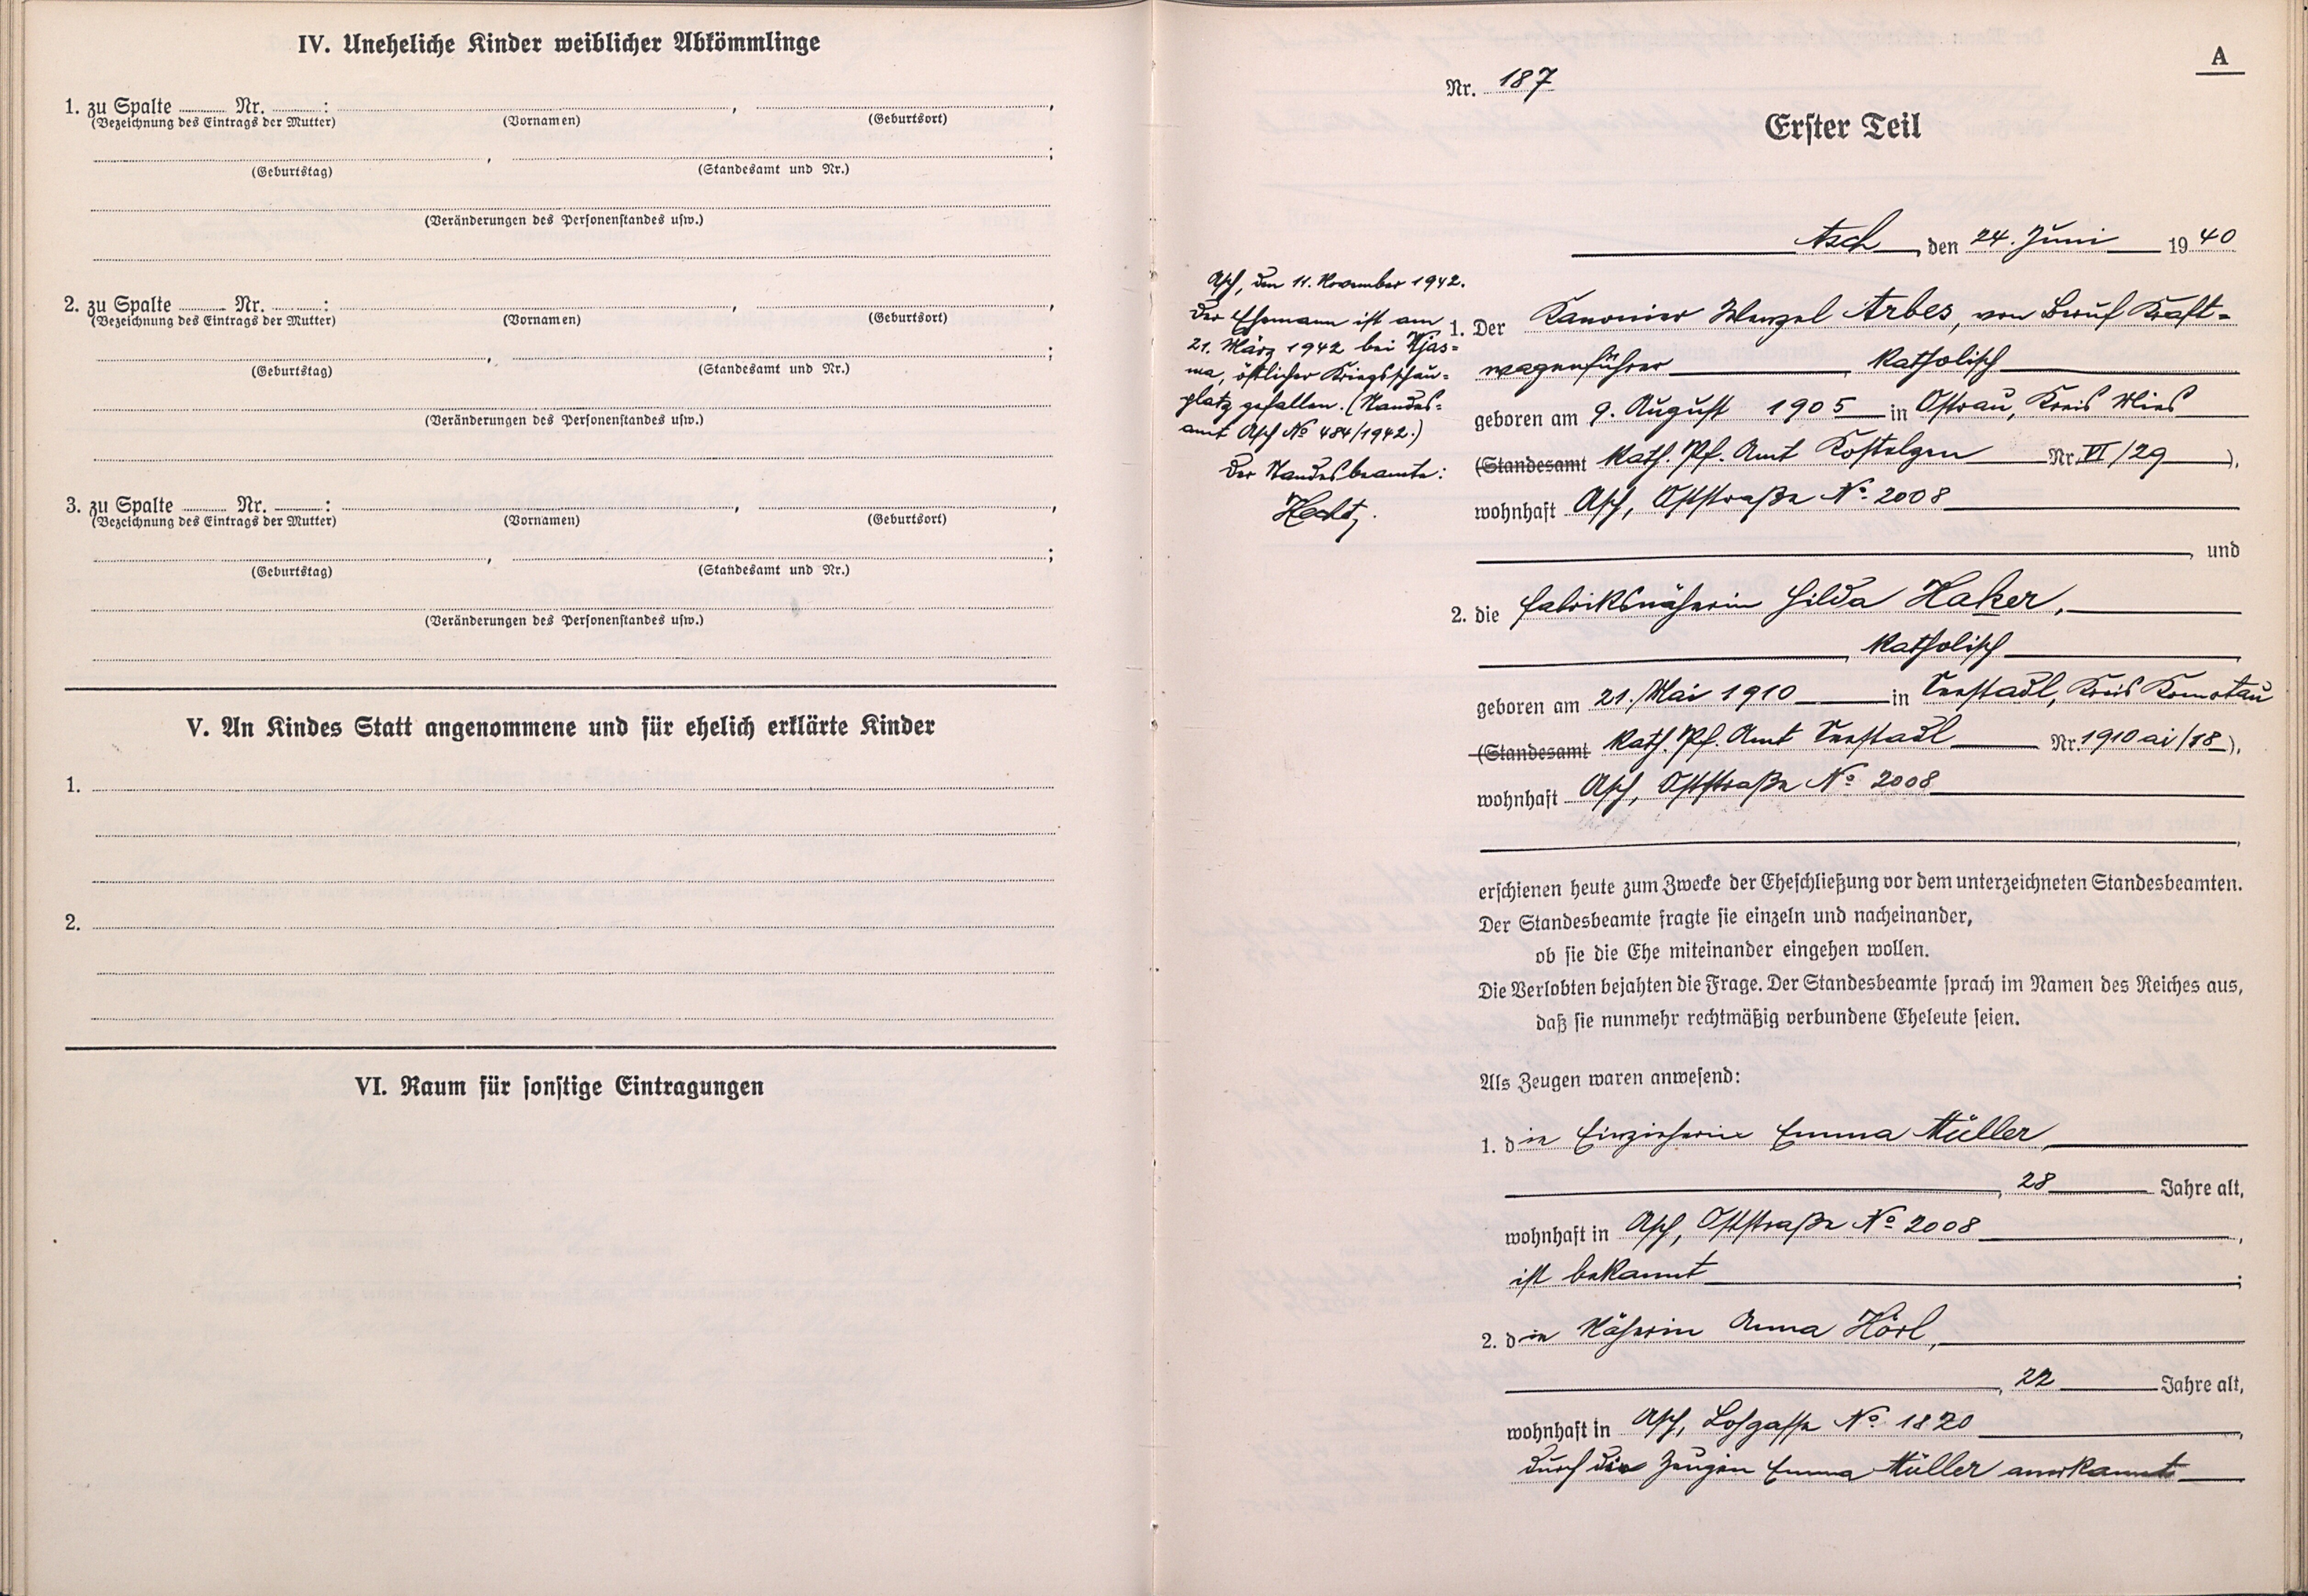 IV. Uneheliche Kinder weiblicher Abkömmlinge
1. zu Spalte Nr. : , ,
(Bezeichnung des Eintrags der Mutter) (Vornamen) (Geburtsort)
, ;
(Geburtstag) (Standesamt und Nr.)
(Veränderungen des Personenstandes usw.)
2. zu Spalte Nr. : , ,
(Bezeichnung des Eintrags der Mutter) (Vornamen) (Geburtsort)
, ;
(Geburtstag) (Standesamt und Nr.)
(Veränderungen des Personenstandes usw.)
3. zu Spalte Nr. : , ,
(Bezeichnung des Eintrags der Mutter) (Vornamen) (Geburtsort)
, ;
(Geburtstag) (Standesamt und Nr.)
(Veränderungen des Personenstandes usw.)
V. An Kindes Statt angenommene und für ehelich erklärte Kinder
1.
2.
VI. Raum für sonstige Eintragungen
A
Nr. 187
Erster Teil
Asch, den 24. Juni 1940
Asch, den 11. November 1942.
Der Ehemann ist am
21. März 1942 bei Wjas-
ma, östlicher Kriegsschau-
platz gefallen. (Standes-
amt Asch No 484/1942.)
Der Standesbeamte:
1. Der Kanonier Wenzel Arbes, von Beruf Kraft-
wagenführer, katholisch
geboren am 9. August 1905 in Ostrau, Kreis Mies
(Standesamt Kath. Pf. Amt Kostelzen Nr. VI/29),
wohnhaft Asch, Oststraße No. 2008
, und
2. die Fabriksnäherin Hilda Haker,
, katholisch,
geboren am 21. Mai 1910 in Neustadl, Kreis Komotau
(Standesamt Kath. Pf. Amt Neustadl Nr. 1910 ai/18),
wohnhaft Asch, Oststraße No 2008
,
erschienen heute zum Zwecke der Eheschließung vor dem unterzeichneten Standesbeamten.
Der Standesbeamte fragte sie einzeln und nacheinander,
ob sie die Ehe miteinander eingehen wollen.
Die Verlobten bejahten die Frage. Der Standesbeamte sprach im Namen des Reiches aus,
daß sie nunmehr rechtmäßig verbundene Eheleute seien.
Als Zeugen waren anwesend:
1. die Einzieherin Emma Müller
, 28 Jahre alt,
wohnhaft in Asch, Oststraße No 2008,
ist bekannt;
2. die Näherin Anna Hörl,
, 22 Jahre alt,
wohnhaft in Asch, Losgasse No. 1820,
durch die Zeugin Emma Müller anerkannt